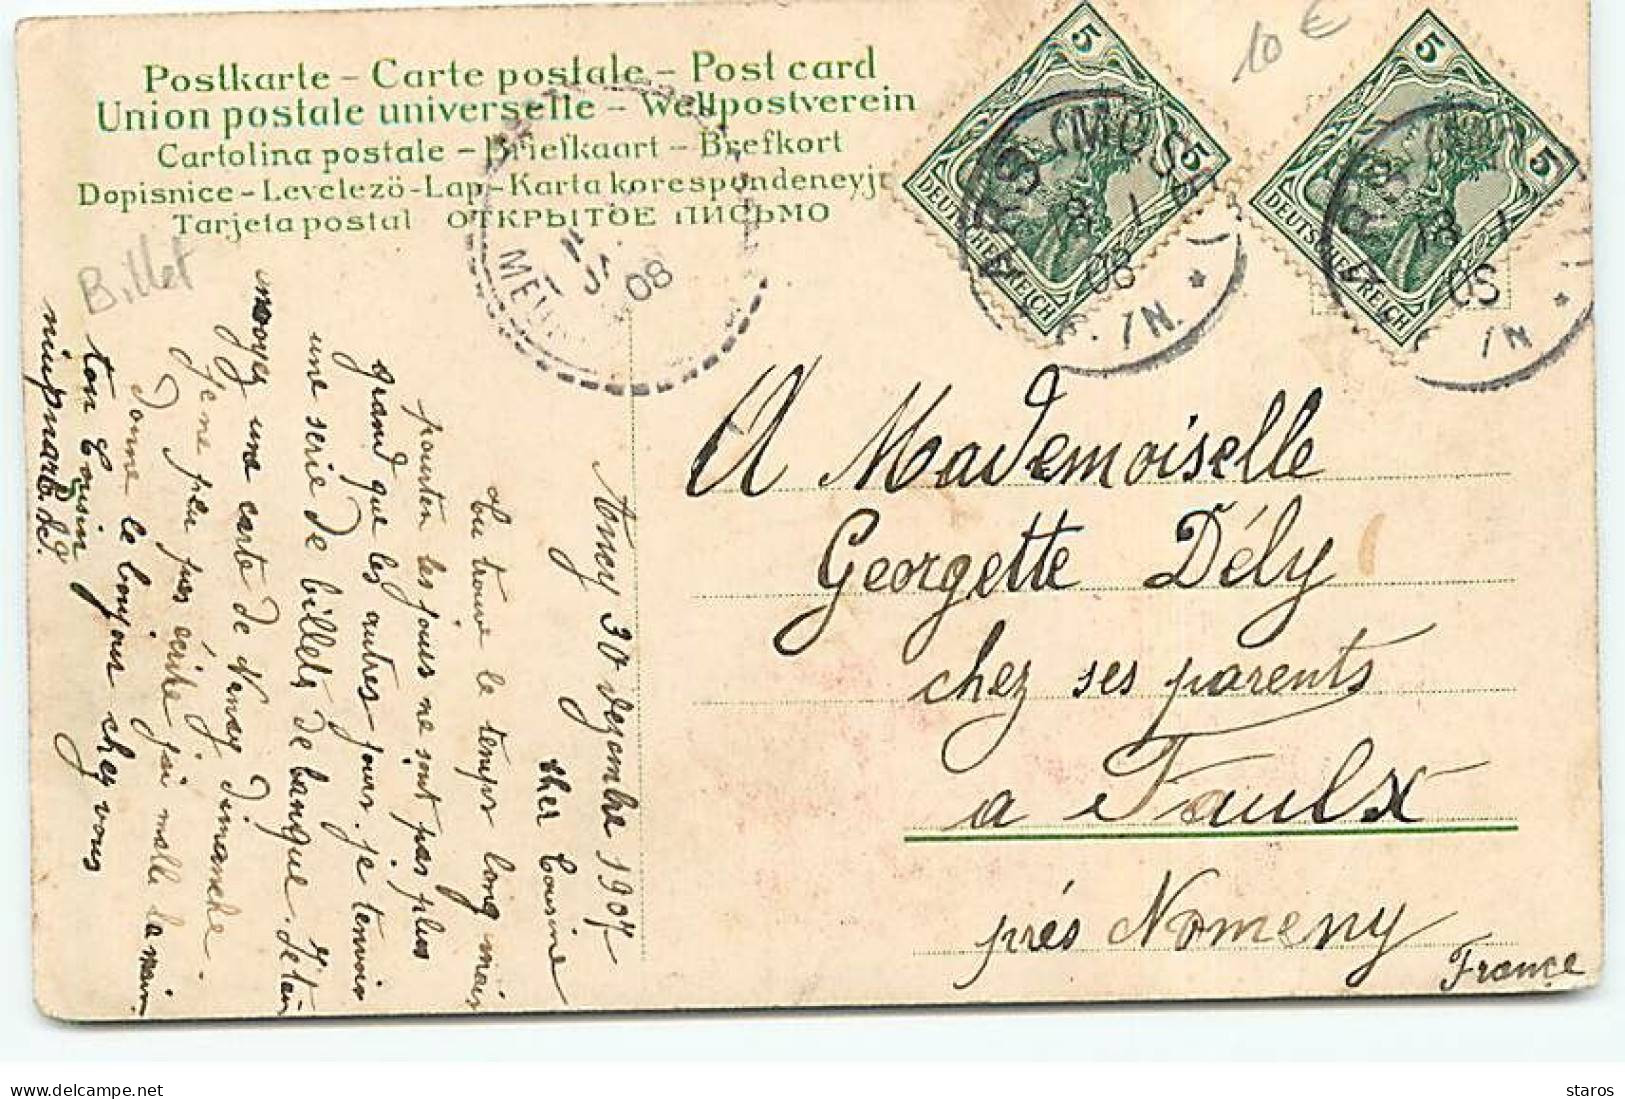 Postkarte – Carte postale – Post card
Union postale universelle – Weltpostverein
Cartolina postale – Briefkaart – Brefkort
Dopisnice – Levelező-Lap – Karta korespondencyj
Tarjeta postal ОТКРЫТОЕ ПИСЬМО
10 €
5
5
DEUTSCHES REICH
5
5
DEUTSCHES REICH
ARS (MOSEL)
8 1
08
7N.
08
Billet
A Mademoiselle
Georgette Dély
chez ses parents
a Faulx
près Nomeny
France
30 dezembre 1907
cher Cousine
tu trouve le temps long mais
pourten les jours ne sont pas plus
grand que les autres jours. je tenvoir
une serie de billets de banque.
une carte de Nancy dimanche.
Je ne peu pas écrire j'ai malle la main
Donne le bonjour chez vous
ton Cousin
Delcampe.net
staros